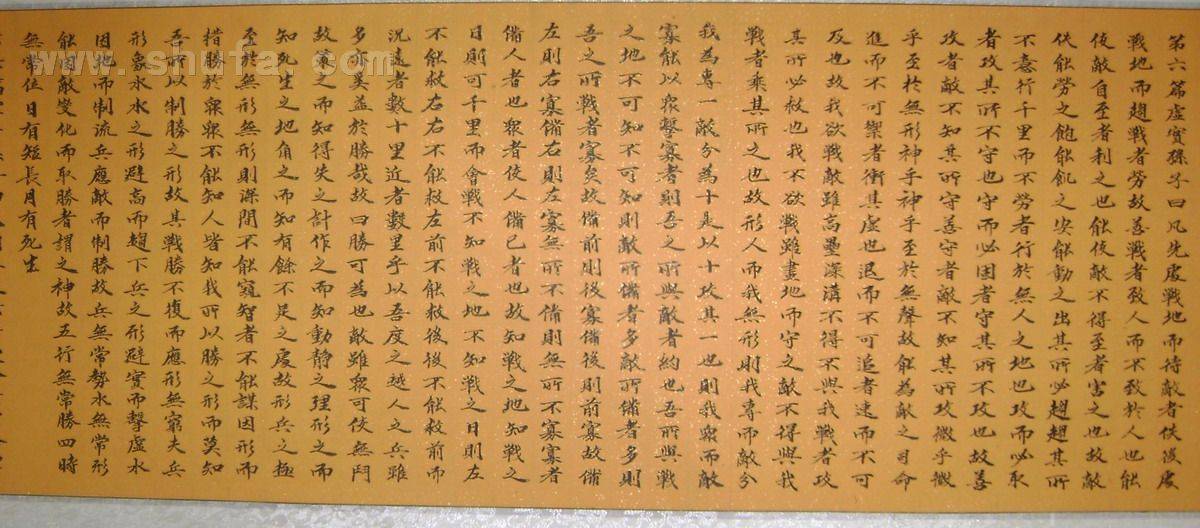 第六篇虛實孫子曰凡先處戰地而待敵者佚後處
戰地而趨戰者勞故善戰者致人而不致於人也能
使敵自至者利之也能使敵不得至者害之也故敵
佚能勞之飽能飢之安能動之出其所必趨趨其所
不意行千里而不勞者行於無人之地也攻而必取
者攻其所不守也守而必固者守其所不攻也故善
攻者敵不知其所守善守者敵不知其所攻微乎微
乎至於無形神乎神乎至於無聲故能為敵之司命
進而不可禦者衝其虛也退而不可追者速而不可
及也故我欲戰敵雖高壘深溝不得不與我戰者攻
其所必救也我不欲戰雖畫地而守之敵不得與我
戰者乘其所之也故形人而我無形則我專而敵分
我為專一敵分為十是以十攻其一也則我衆而敵
寡能以衆擊寡者則吾之所與敵者約也吾所與戰
之地不可知不可知則敵所備者多敵所備者多則
吾之所戰者寡矣故備前則後寡備後則前寡故備
左則右寡備右則左寡無所不備則無所不寡寡者
備人者也衆者使人備己者也故知戰之地知戰之
日則可千里而會戰不知戰之地不知戰之日則左
不能救右右不能救左前不能救後後不能救前而
況遠者數十里近者數里乎以吾度之越人之兵雖
多亦奚益於勝哉故曰勝可為也敵雖衆可使無鬥
故策之而知得失之計作之而知動靜之理形之而
知死生之地角之而知有餘不足之處故形兵之極
至於無形無形則深間不能窺智者不能謀因形而
措勝於衆衆不能知人皆知我所以勝之形而莫知
吾所以制勝之形故其戰勝不復而應形無窮夫兵
形象水水之形避高而趨下兵之形避實而擊虛水
因地而制流兵應敵而制勝故兵無常勢水無常形
能因敵變化而取勝者謂之神故五行無常勝四時
無常位日有短長月有死生
www.shufa.com